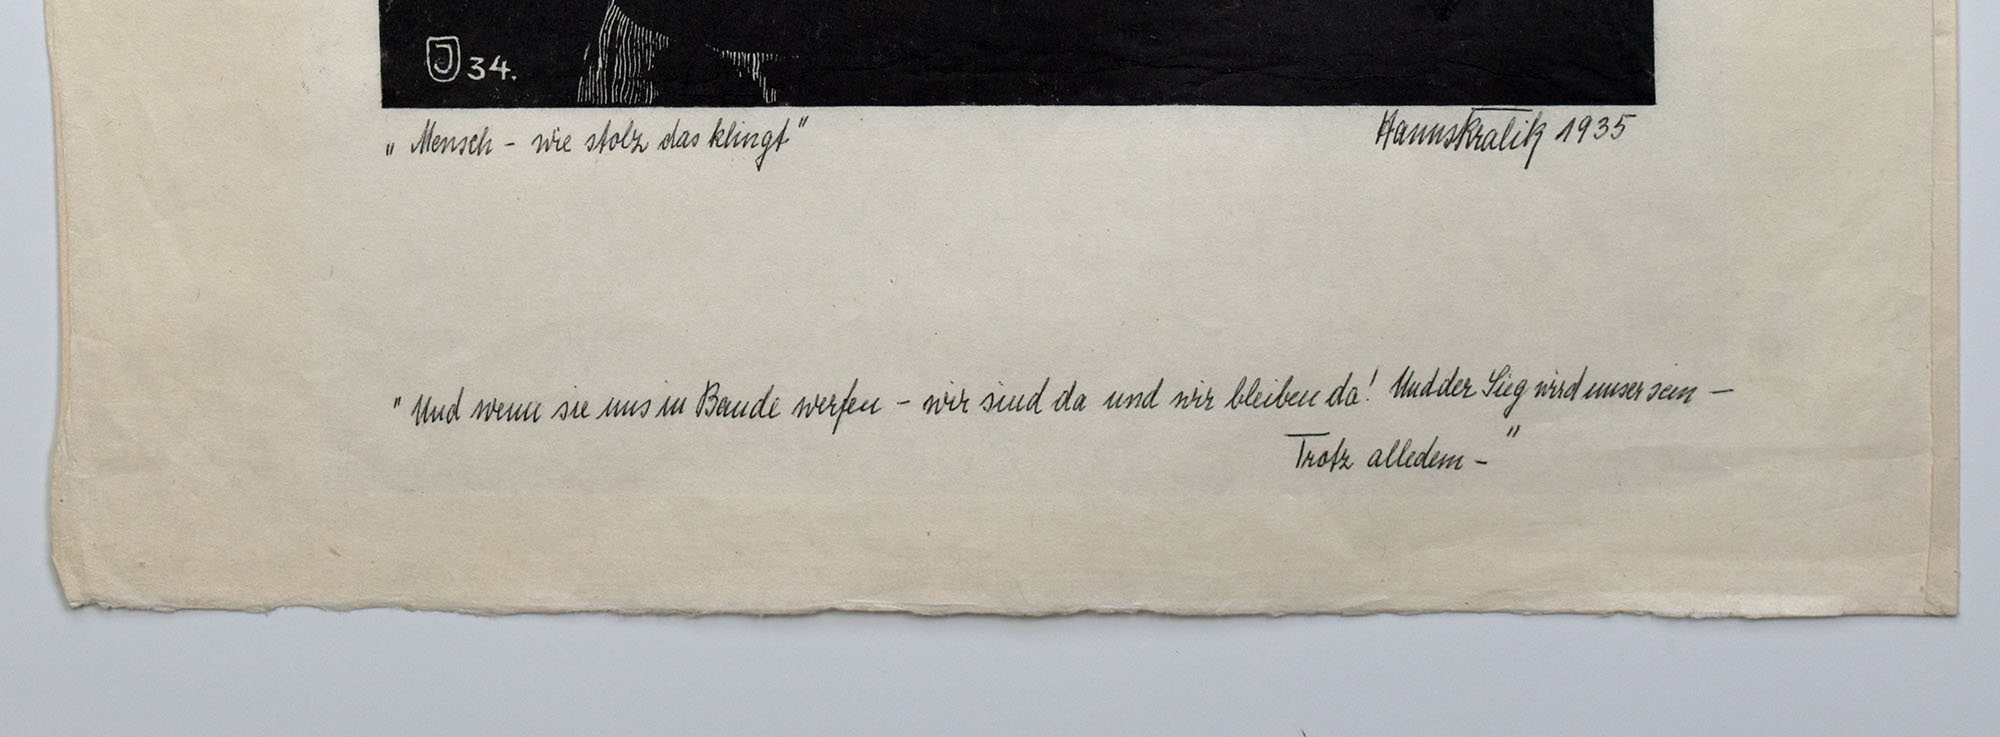 J 34.
„Mensch – wie stolz das klingt"
Hanns Kralik 1935
"Und wenn sie uns in Bande werfen – wir sind da und wir bleiben da! Und der Sieg wird unser sein –
Trotz alledem –"